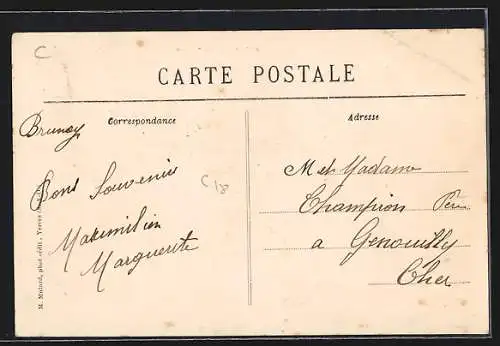 C
CARTE POSTALE
Correspondance
Adresse
Brunoy
Bons Souvenirs
Maximilien
Marguerite
C/18
M et Madame
Champion Père
a Genouilly
Cher
M. Mulard, phot.-édit., Yerres